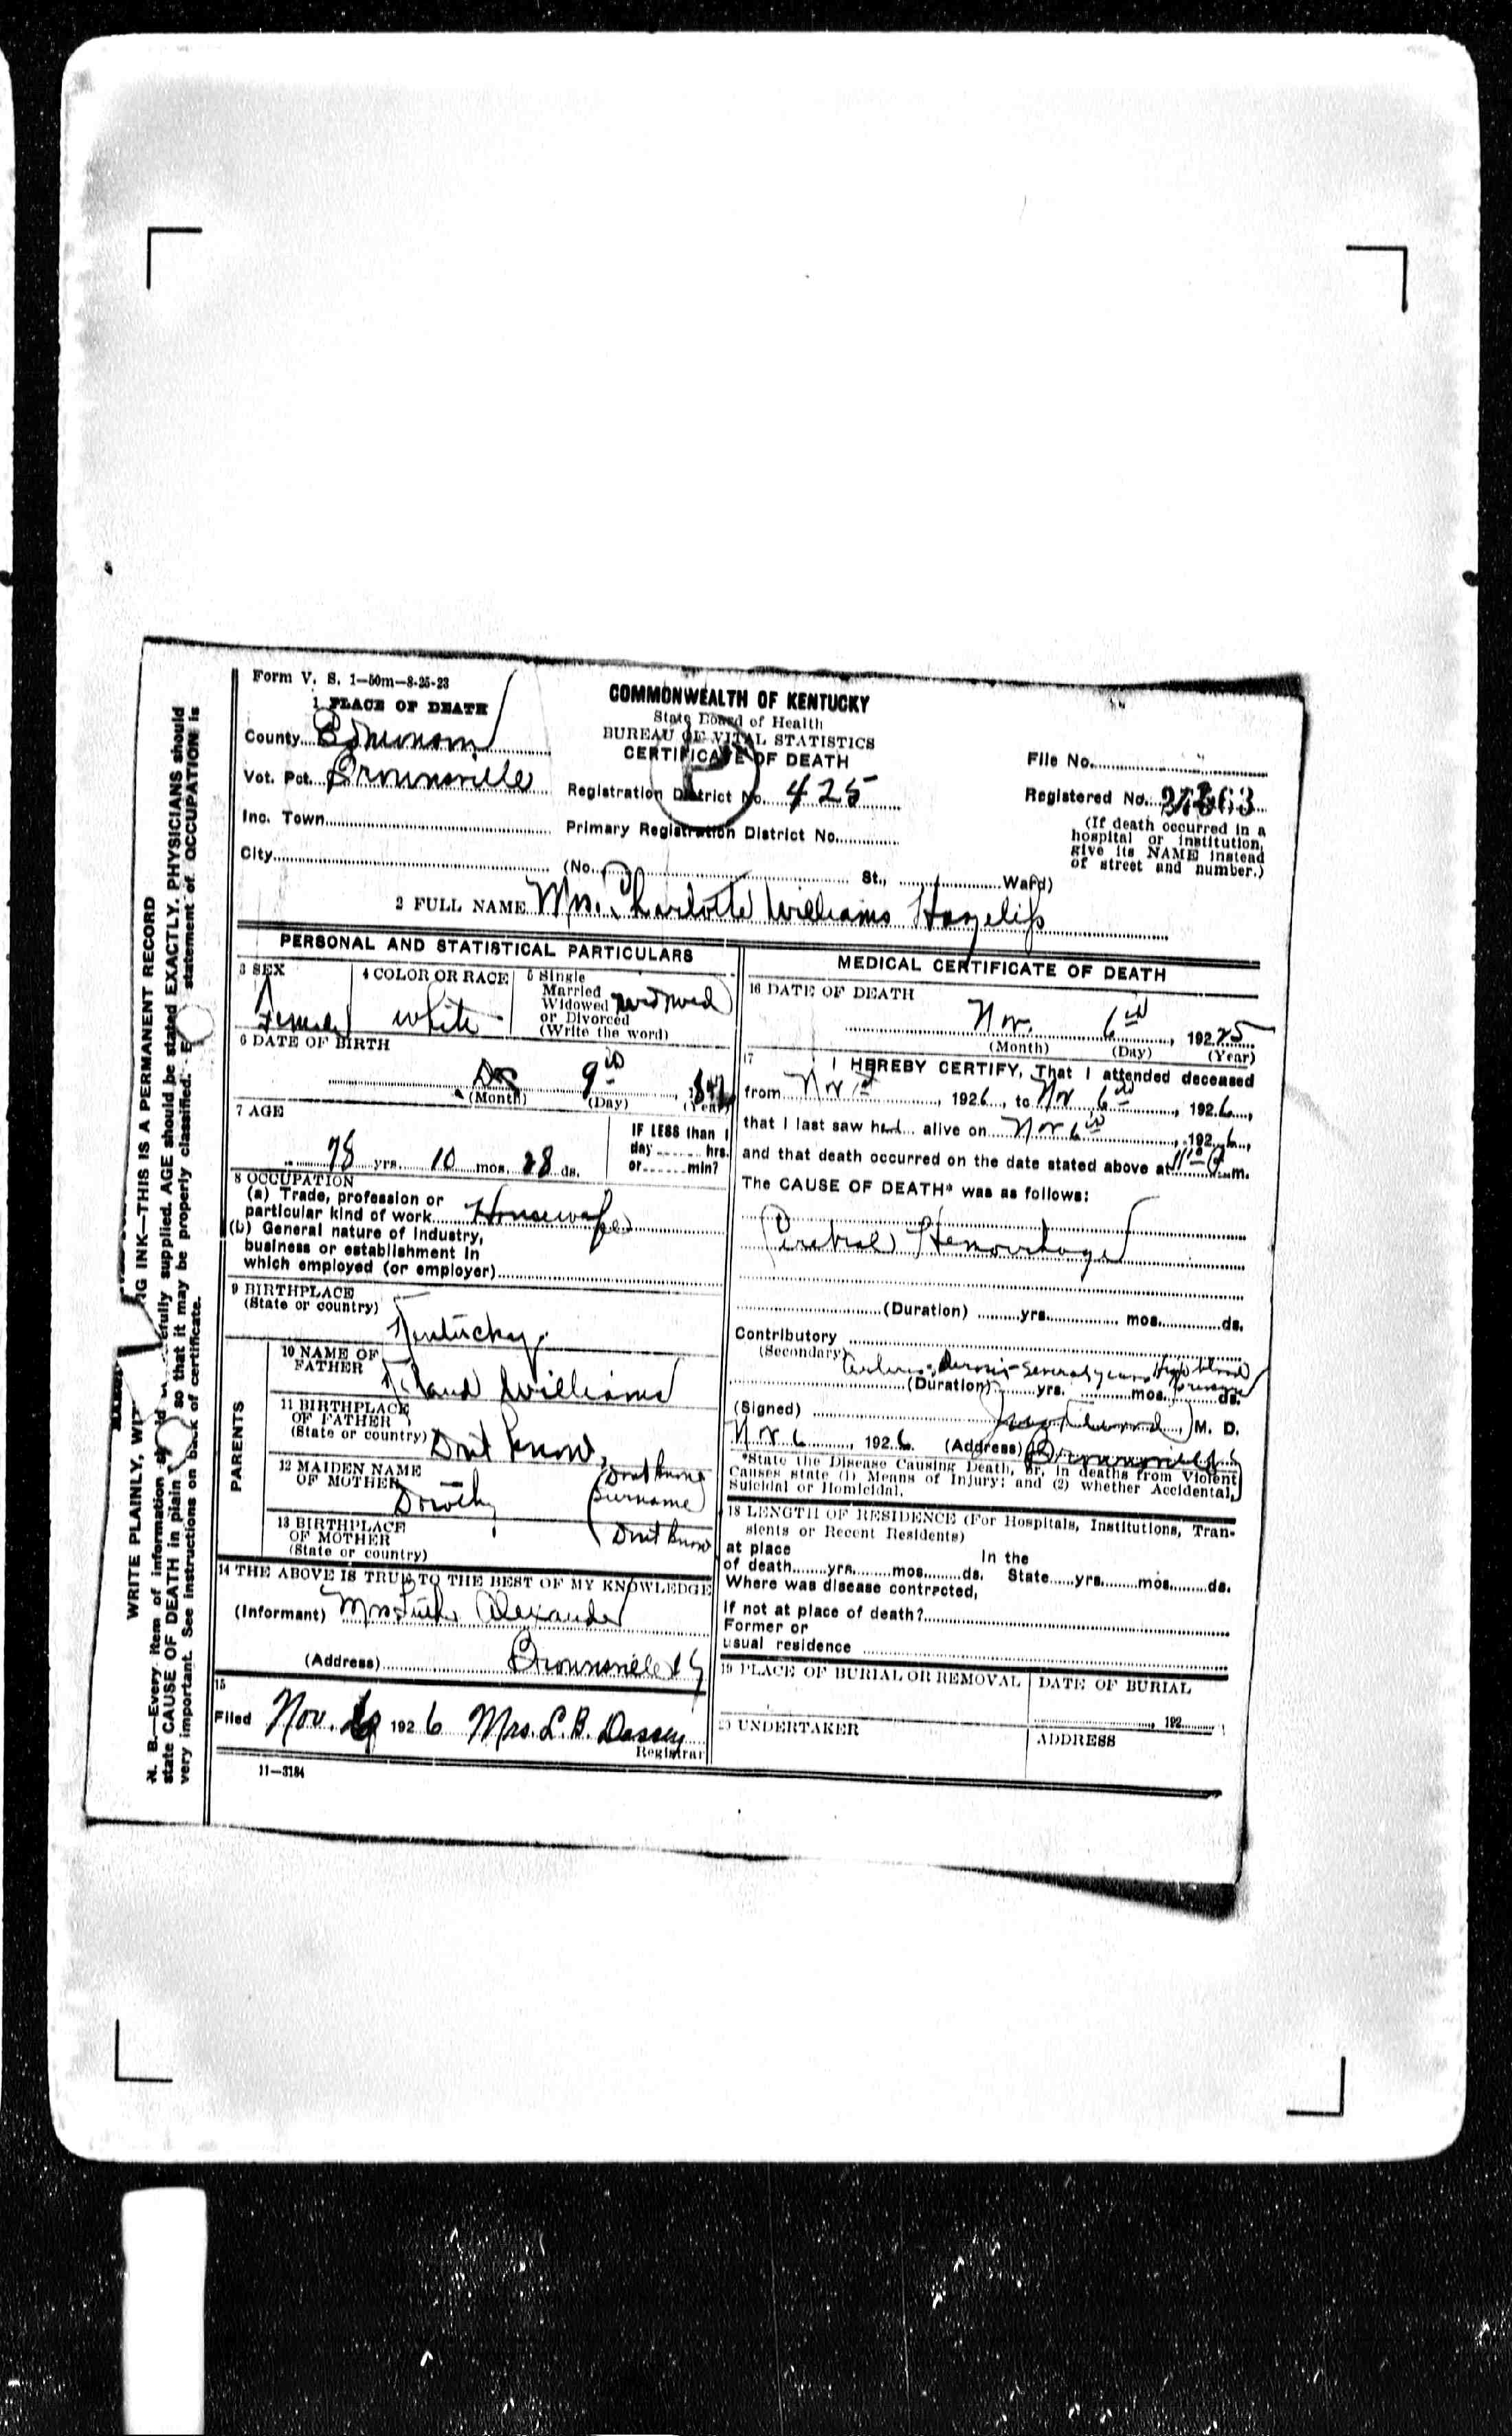 Form V. S. 1—50m—8-25-23
1 PLACE OF DEATH
County Edmonson
Vot. Pct. Brownsville
Inc. Town
City
COMMONWEALTH OF KENTUCKY
State Board of Health
BUREAU OF VITAL STATISTICS
CERTIFICATE OF DEATH
Registration District No. 425
Primary Registration District No.
(No. St., Ward)
File No.
Registered No.
(If death occurred in a
hospital or institution,
give its NAME instead
of street and number.)
2 FULL NAME Mrs. Charlotte Williams Hazelip
PERSONAL AND STATISTICAL PARTICULARS
3 SEX
Female
4 COLOR OR RACE
White
5 Single
Married
Widowed
or Divorced
(Write the word)
widowed
6 DATE OF BIRTH
9
(Month) (Day) (Year)
7 AGE
78 yrs. 10 mos. 28 ds.
IF LESS than 1
day hrs.
or min?
8 OCCUPATION
(a) Trade, profession or
particular kind of work Housewife
(b) General nature of industry,
business or establishment in
which employed (or employer)
9 BIRTHPLACE
(State or country)
Kentucky
PARENTS
10 NAME OF
FATHER
Williams
11 BIRTHPLACE
OF FATHER
(State or country)
Dont know
12 MAIDEN NAME
OF MOTHER
Dorothy
(Dont know
Surname)
13 BIRTHPLACE
OF MOTHER
(State or country)
(Dont know
14 THE ABOVE IS TRUE TO THE BEST OF MY KNOWLEDGE
(Informant) Mrs Alexander
(Address) Brownsville Ky
15
Filed Nov. 1926 Mrs. L. B.
Registrar
11—3184
MEDICAL CERTIFICATE OF DEATH
16 DATE OF DEATH
Nov. 6 192
(Month) (Day) (Year)
17 I HEREBY CERTIFY, That I attended deceased
from Nov 1st, 1926, to Nov 6, 1926,
that I last saw her alive on Nov 6, 1926,
and that death occurred on the date stated above at m.
The CAUSE OF DEATH* was as follows:
Cerebral Hemorrhage
(Duration) yrs. mos. ds.
Contributory
(Secondary)
several years High blood
pressure
(Duration) yrs. mos. ds.
(Signed) M. D.
Nov 6, 1926. (Address) Brownsville
*State the Disease Causing Death, or, in deaths from Violent
Causes state (1) Means of Injury; and (2) whether Accidental,
Suicidal or Homicidal.
18 LENGTH OF RESIDENCE (For Hospitals, Institutions, Tran-
sients or Recent Residents)
at place In the
of death yrs. mos. ds. State yrs. mos. ds.
Where was disease contracted,
If not at place of death?
Former or
usual residence
19 PLACE OF BURIAL OR REMOVAL
DATE OF BURIAL
, 192
20 UNDERTAKER
ADDRESS
WRITE PLAINLY, NG INK—THIS IS A PERMANENT RECORD
N. B.—Every item of information should be carefully supplied. AGE should be stated EXACTLY. PHYSICIANS should
state CAUSE OF DEATH in plain so that it may be properly classified. statement of OCCUPATION is
very important. See instructions on back of certificate.